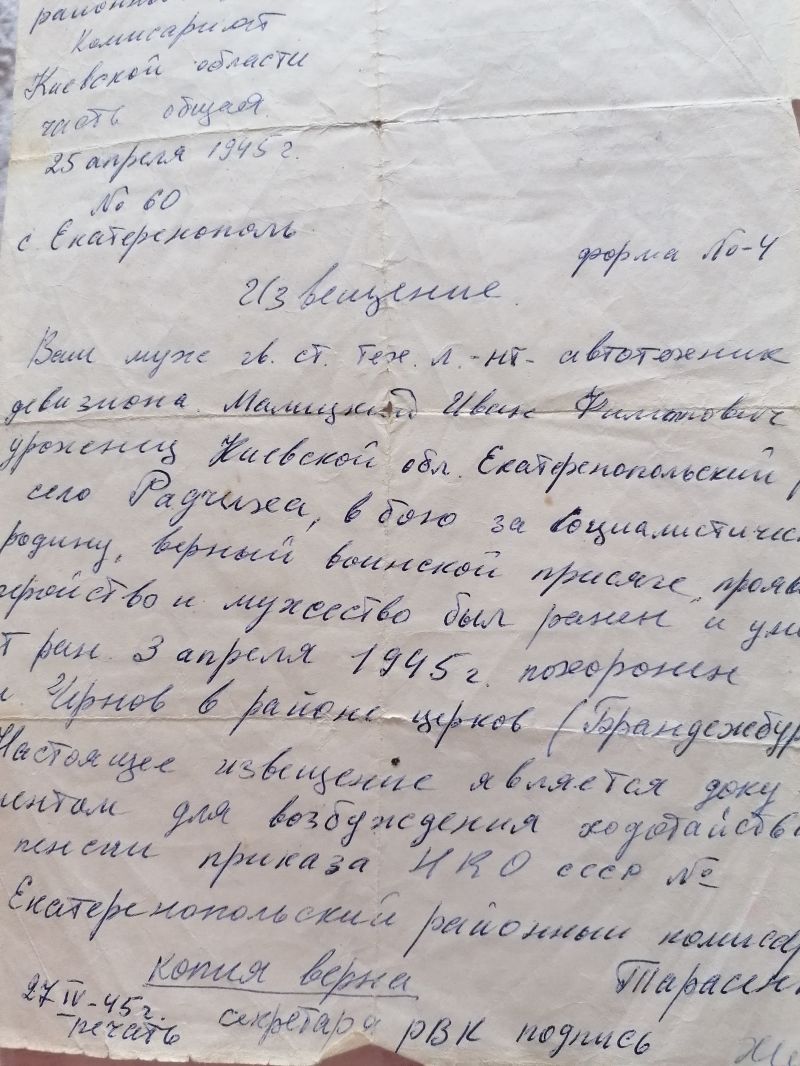 районн
Комисариат
Киевской области
часть общая.
25 апреля 1945 г.
№ 60
с. Екатеренополь
форма №-4
Извещение.
Ваш муж гв. ст. тех. л.-нт- автотехник
девизиона. Малицкий Иван
уроженец Киевской обл. Екатеренопольский р
село Радчиха, в бою за Социалистичес
родину, верный воинской присяге, прояв
геройство и мужество был ранен и уме
т ран. 3 апреля 1945 г. похоронен
Чернов в районе церков (Брандежбур
Настоящее извещение является доку
ентом для возбуждения ходотайств
пенсии приказа НКО СССР №
Екатеренопольский районный комисар
Тарасен
копия верна
27 IV-45 г.
печать секретара РВК подпись